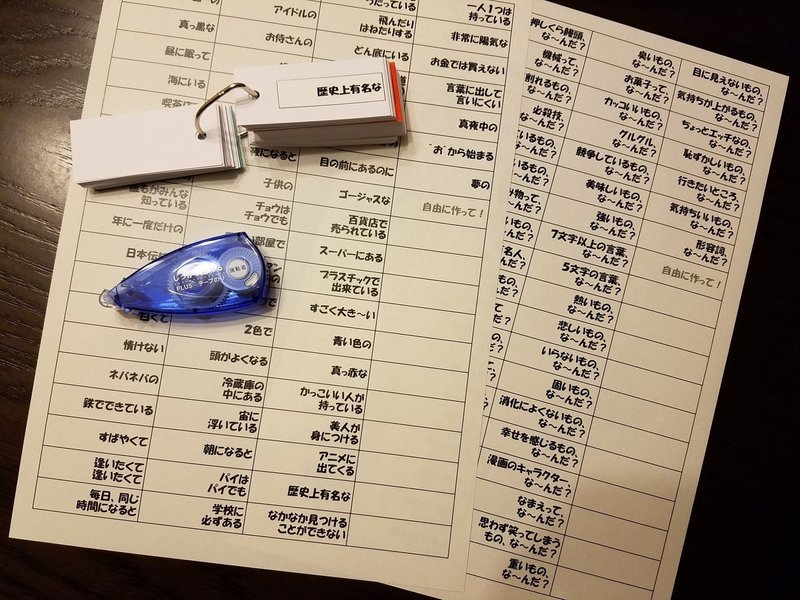 アイドルの
飛んだり
はねたりする
一人1つは
持っている
真っ黒な
お侍さんの
どん底にいる
非常に陽気な
昼に眠って
お金では買えない
海にいる
言葉に出して
言いにくい
真夜中の
夜になると
目の前にあるのに
"お"から始まる
誰もがみんな
知っている
子供の
ゴージャスな
夢の
年に一度だけの
チョウは
チョウでも
百貨店で
売られている
自由に作って!
部屋で
スーパーにある
プラスチックで
出来ている
すごく大き〜い
白くて
2色で
青い色の
情けない
頭がよくなる
真っ赤な
ネバネバの
冷蔵庫の
中にある
かっこいい人が
持っている
鉄でできている
宙に
浮いている
美人が
身につける
すばやくて
朝になると
アニメに
出てくる
逢いたくて
逢いたくて
パイは
パイでも
歴史上有名な
毎日、同じ
時間になると
学校に
必ずある
なかなか見つける
ことができない
歴史上有名な
PLUS
テープのり
押しくら饅頭、
な〜んだ?
臭いもの、
な〜んだ?
目に見えないもの、
な〜んだ?
機械って、
な〜んだ?
お菓子って、
な〜んだ?
気持ちが上がるもの、
な〜んだ?
割れるもの、
な〜んだ?
カッコいいもの、
な〜んだ?
ちょっとエッチなの、
な〜んだ?
必殺技、
な〜んだ?
グルグル、
な〜んだ?
恥ずかしいもの、
な〜んだ?
競争しているもの、
な〜んだ?
美味しいもの、
な〜んだ?
行きたいところ、
な〜んだ?
強いもの、
な〜んだ?
気持ちいいもの、
な〜んだ?
7文字以上の言葉、
な〜んだ?
形容詞、
な〜んだ?
5文字の言葉、
な〜んだ?
自由に作って!
熱いもの、
な〜んだ?
悲しいもの、
な〜んだ?
いらないもの、
な〜んだ?
固いもの、
な〜んだ?
消化によくないもの、
な〜んだ?
幸せを感じるもの、
な〜んだ?
漫画のキャラクター、
な〜んだ?
なまえって、
な〜んだ?
思わず笑ってしまう
もの、な〜んだ?
重いもの、
な〜んだ?